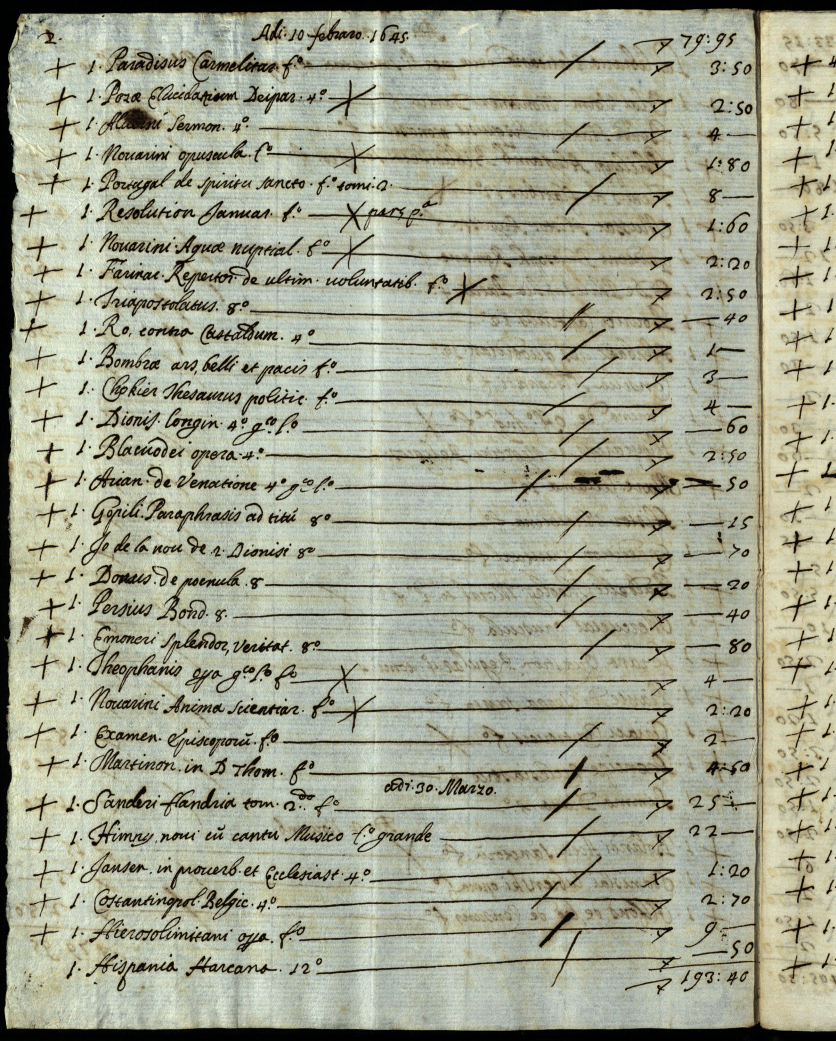 2. Adi. 10 febraro. 1645. 79:95
+ 1. Paradisus Carmelitar. fo 3:50
+ 1. Pozæ Elucidarium Deipar. 4o 2:50
+ 1. Sermon. 4o 4—
+ 1. Nouarini opuscula. fo 1:80
+ 1. Portugal de spiritu sancto. fo tomi. 2. 8—
+ 1. Resolution Januar. fo pars pa 1:60
+ 1. Nouarini Aquæ nuptial. fo 2:20
+ 1. Farinac. Repertor. de ultim. uoluntatib. fo 2:50
+ 1. Triapostolatus. 8o —40
+ 1. Ro. contra Castaldum. 4o 1—
+ 1. Bombræ ars, belli et pacis fo 3—
+ 1. Chokier Thesaurus politic. fo 4—
+ 1. Dionis. longin. 4o gco lo —60
+ 1. Blacuodei opera. 4o 2:50
+ 1. Arian. de Venatione 4o gco lo —50
+ 1. Gopili. Paraphrasis ad titū 8o —15
+ 1. Jo de la nou de 2. Dionisi 8o —70
+ 1. Donus. de poenula. 8 —20
+ 1. Persius Bond. 8. —40
+ 1. Emoneri splendor, veritat. 8o —80
+ 1. Theophanis opa gco lo fo 4—
+ 1. Nouarini Anima scientiar. fo 2:20
+ 1. Examen. episcoporū. fo 2—
+ 1. Martinon. in D Thom. fo 4:50
adi. 30. Marzo.
+ 1. Sanderi flandria tom. 2do fo 25—
+ 1. Himny, noui cū cantu Musico fo grande 22—
+ 1. Jansen. in prouerb. et Ecclesiast. 4o 1:20
+ 1. Costantinpol. Belgic. 4o 2:70
+ 1. Hierosolimitani opa. fo 9—
1. Hispania 12o —50
193:40